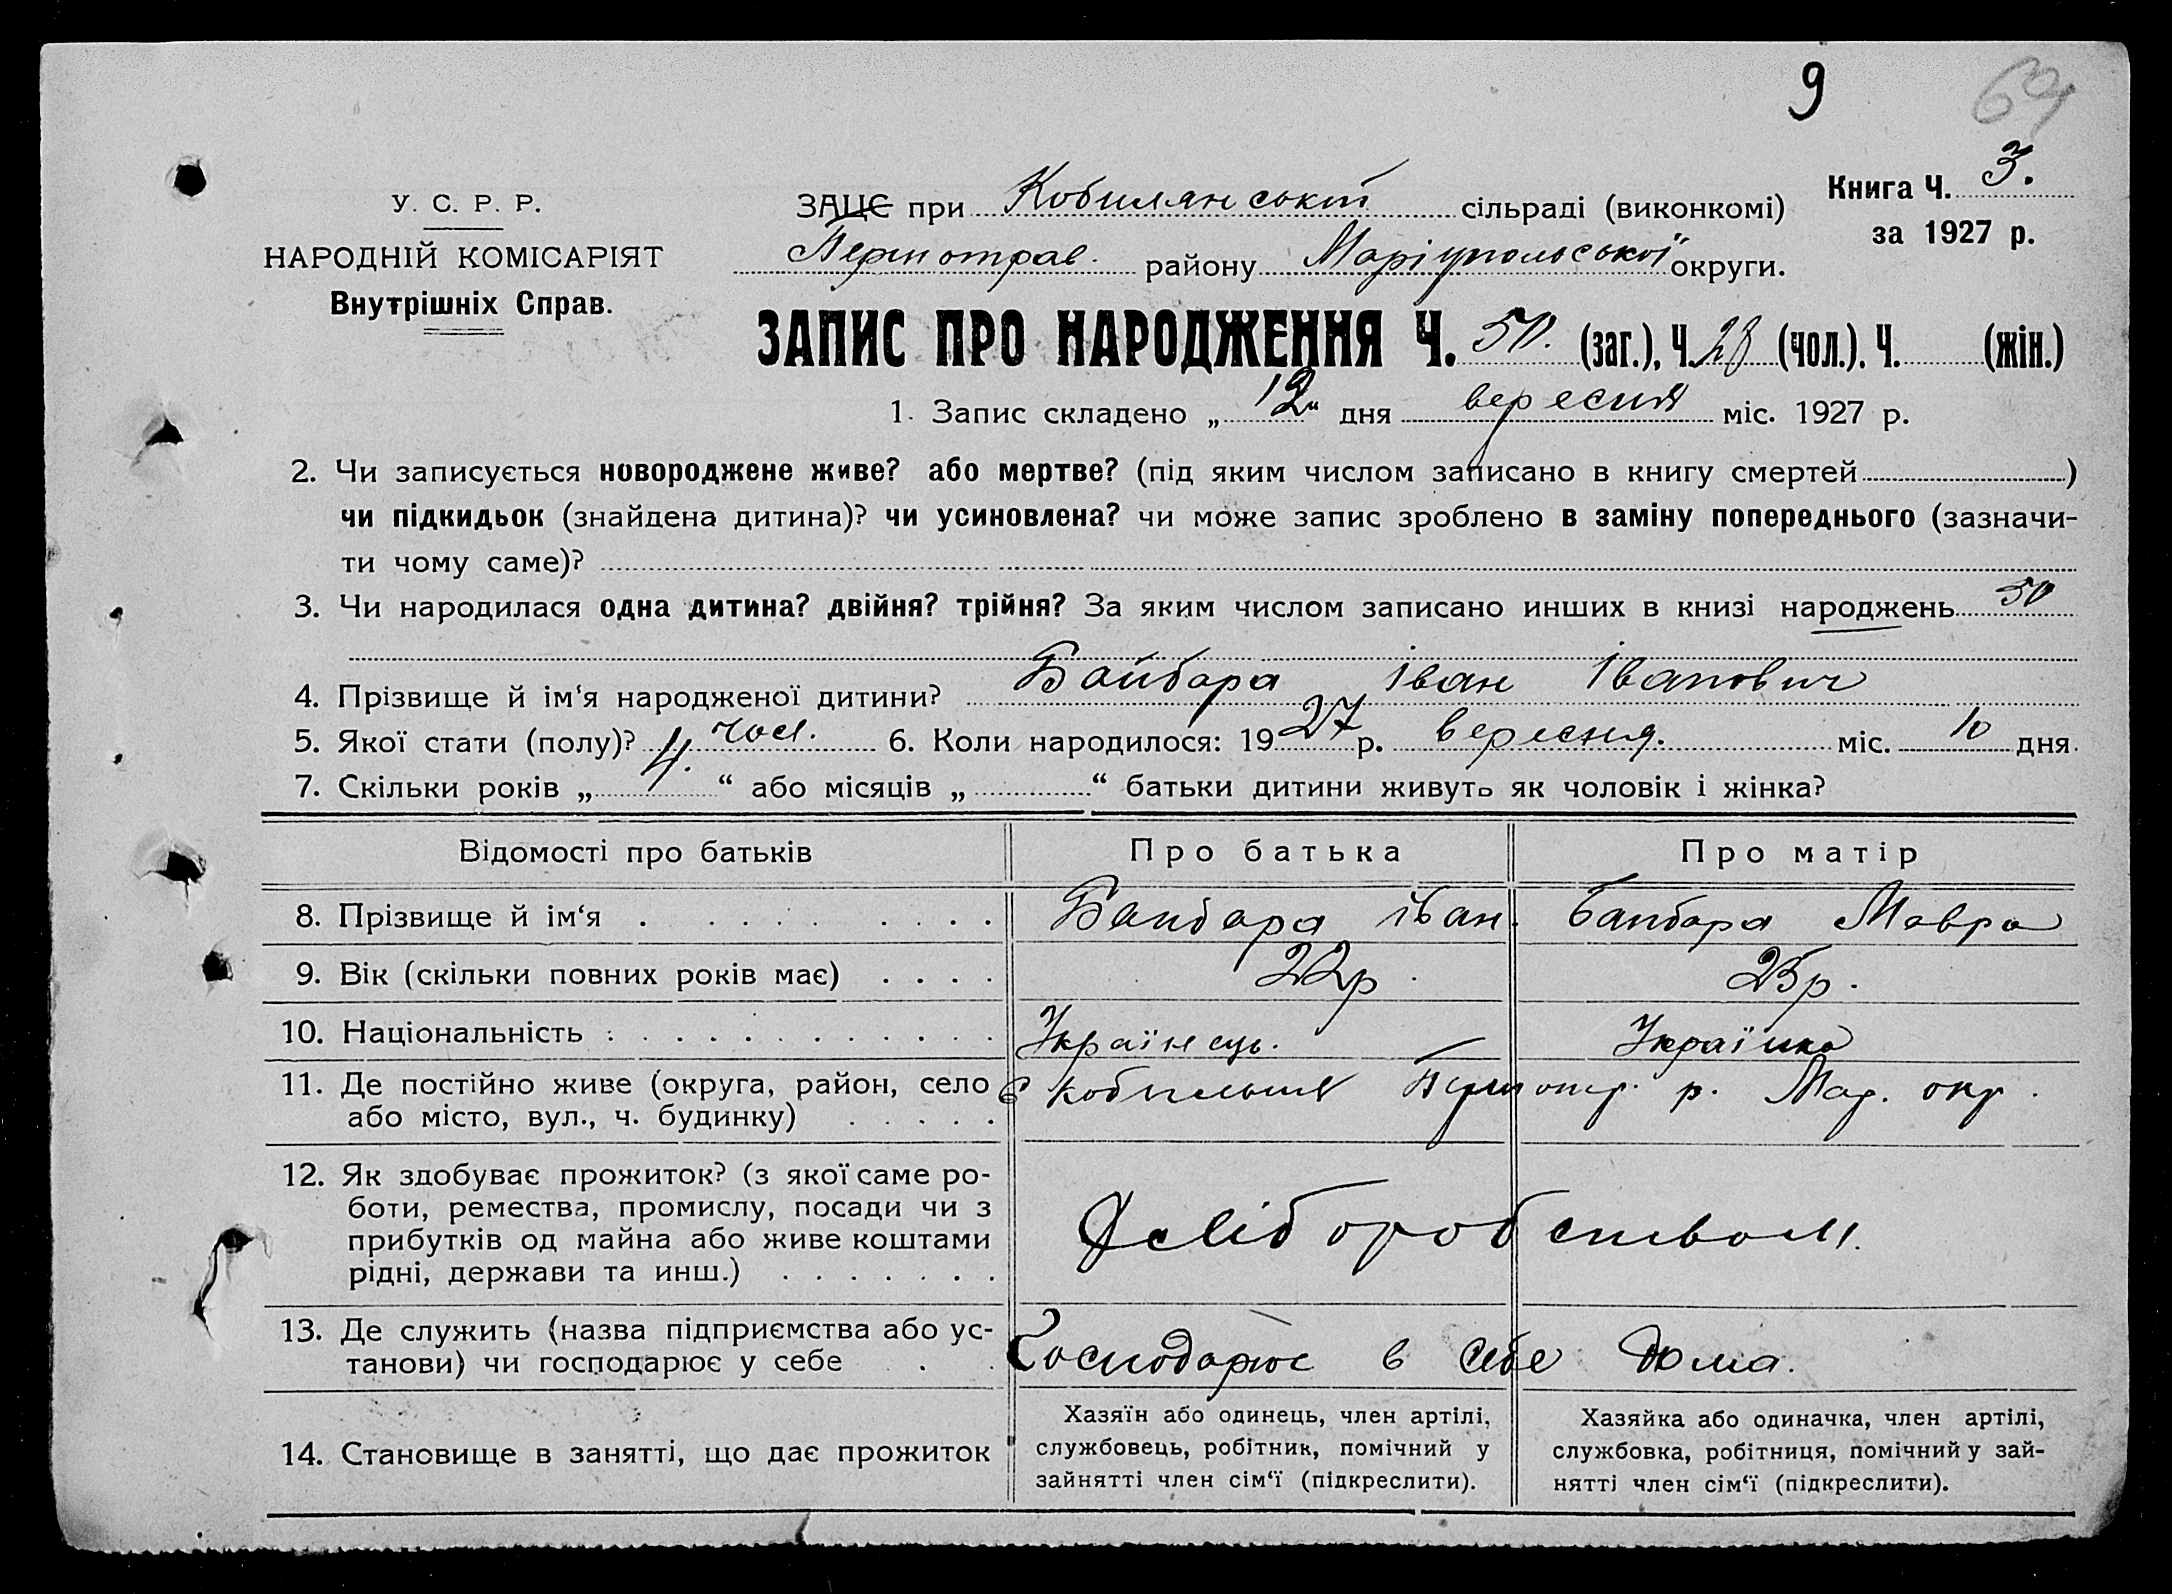 9
64
У. С. Р. Р.
НАРОДНІЙ КОМІСАРІЯТ
Внутрішніх Справ.
ЗАЦС при Кобилянській сільраді (виконкомі)
Книга Ч. 3.
за 1927 р.
Першотрав. району Маріупольської округи.
ЗАПИС ПРО НАРОДЖЕННЯ Ч. 50. (заг.), Ч. 28 (чол.). Ч. (жін.)
1. Запис складено „ 12 “ дня вересня міс. 1927 р.
2. Чи записується новороджене живе? або мертве? (під яким числом записано в книгу смертей )
чи підкидьок (знайдена дитина)? чи усиновлена? чи може запис зроблено в заміну попереднього (зазначи-
ти чому саме)?
3. Чи народилася одна дитина? двійня? трійня? За яким числом записано инших в книзі народжень 50
4. Прізвище й ім‘я народженої дитини? Байбара Іван Іванович
5. Якої стати (полу)? чол. 6. Коли народилося: 1927 р. вересня. міс. 10 дня.
7. Скільки років „ 4. “ або місяців „ “ батьки дитини живуть як чоловік і жінка?
Відомості про батьків Про батька Про матір
8. Прізвище й ім‘я . . . . . . . . . Байбара Іван. Байбара Мавра
9. Вік (скільки повних років має) . . . . 22р. 25р.
10. Національність . . . . . . . . . . Українець. Українка
11. Де постійно живе (округа, район, село
або місто, вул., ч. будинку) . . . . .
с Кобильня Першотр. р. Мар. окр.
12. Як здобуває прожиток? (з якої саме ро-
боти, ремества, промислу, посади чи з
прибутків од майна або живе коштами
рідні, держави та инш.) . . . . . . .
Хліборобством.
13. Де служить (назва підприємства або ус-
танови) чи господарює у себе . .
Господарює в себе дома.
14. Становище в занятті, що дає прожиток
Хазяїн або одинець, член артілі,
службовець, робітник, помічний у
зайнятті член сім‘ї (підкреслити).
Хазяйка або одиначка, член артілі,
службовка, робітниця, помічний у зай-
нятті член сім‘ї (підкреслити).